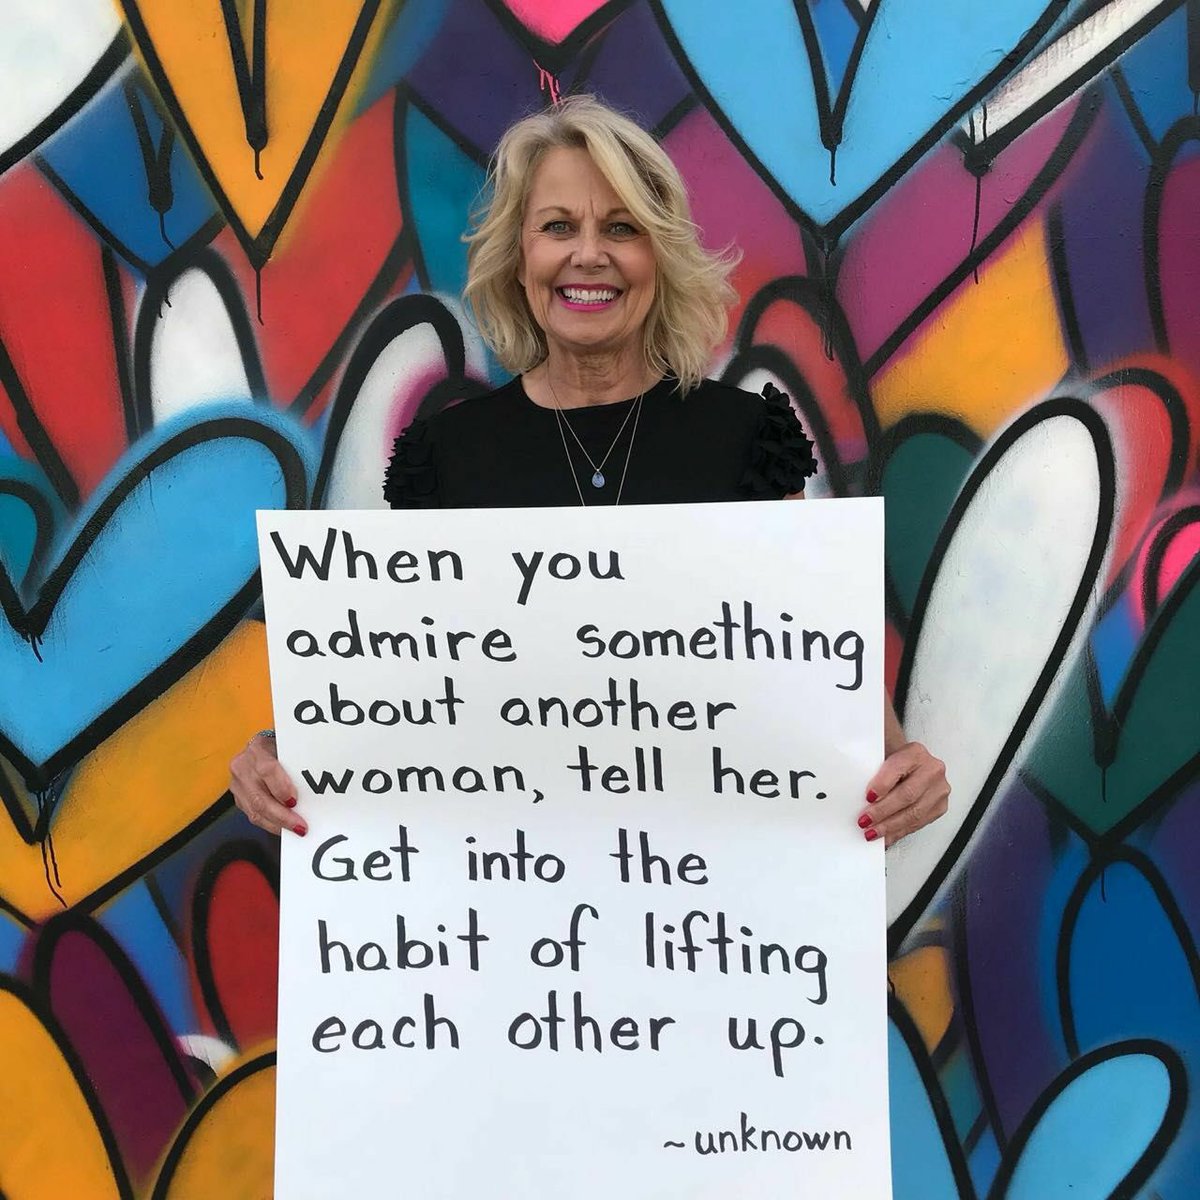 When you
admire something
about another
woman, tell her.
Get into the
habit of lifting
each other up.
~unknown